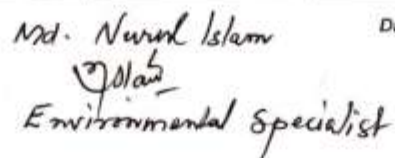 Md. Nurul Islam
Islam
Environmental Specialist